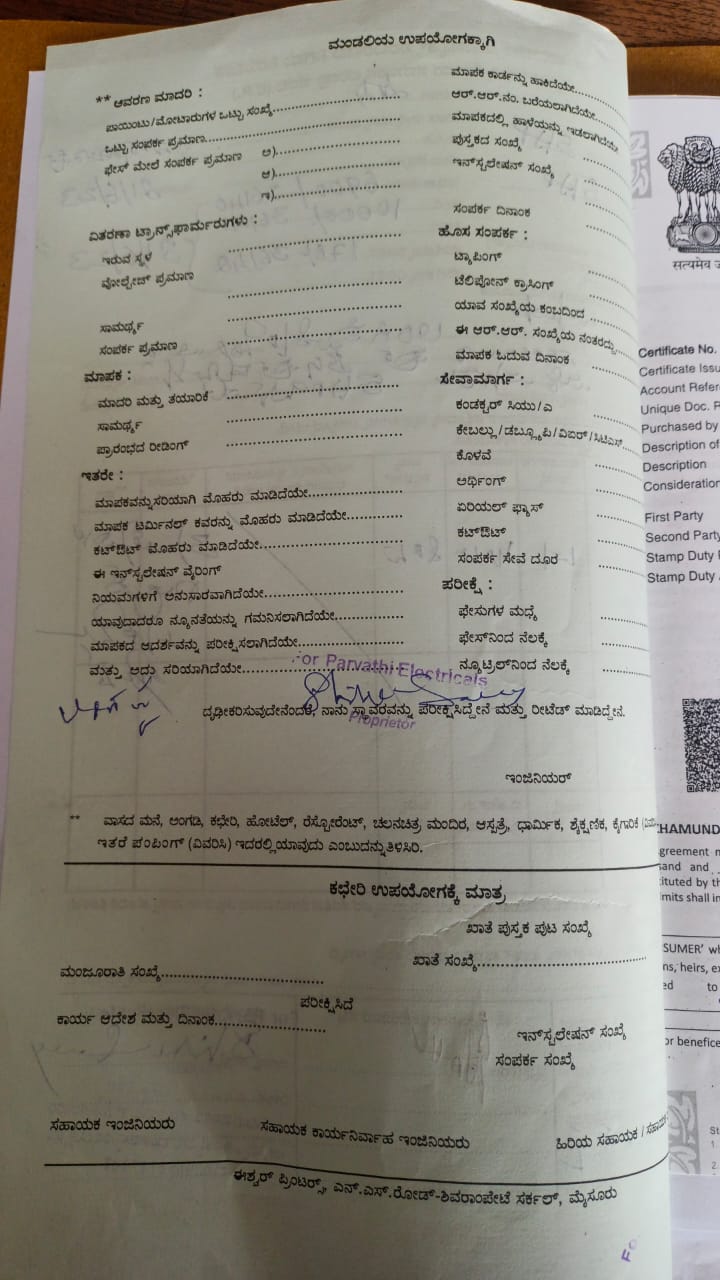 ಮಂಡಲಿಯ ಉಪಯೋಗಕ್ಕಾಗಿ
** ಆವರಣ ಮಾದರಿ :
ಪಾಯಿಂಟು/ಮೋಟಾರುಗಳ ಒಟ್ಟು ಸಂಖ್ಯೆ
ಒಟ್ಟು ಸಂಪರ್ಕ ಪ್ರಮಾಣ
ಫೇಸ್ ಮೇಲೆ ಸಂಪರ್ಕ ಪ್ರಮಾಣ ಅ)
ಆ)
ಇ)
ವಿತರಣಾ ಟ್ರಾನ್ಸ್‌ಫಾರ್ಮರುಗಳು :
ಇರುವ ಸ್ಥಳ
ವೋಲ್ಟೇಜ್ ಪ್ರಮಾಣ
ಸಾಮರ್ಥ್ಯ
ಸಂಪರ್ಕ ಪ್ರಮಾಣ
ಮಾಪಕ :
ಮಾದರಿ ಮತ್ತು ತಯಾರಿಕೆ
ಸಾಮರ್ಥ್ಯ
ಪ್ರಾರಂಭದ ರೀಡಿಂಗ್
ಇತರೇ :
ಮಾಪಕವನ್ನುಸರಿಯಾಗಿ ಮೊಹರು ಮಾಡಿದೆಯೇ
ಮಾಪಕ ಟರ್ಮಿನಲ್ ಕವರನ್ನು ಮೊಹರು ಮಾಡಿದೆಯೇ
ಕಟ್‌ಔಟ್ ಮೊಹರು ಮಾಡಿದೆಯೇ
ಈ ಇನ್‌ಸ್ಟಲೇಷನ್ ವೈರಿಂಗ್
ನಿಯಮಗಳಿಗೆ ಅನುಸಾರವಾಗಿದೆಯೇ
ಯಾವುದಾದರೂ ನ್ಯೂನತೆಯನ್ನು ಗಮನಿಸಲಾಗಿದೆಯೇ
ಮಾಪಕದ ಆದರ್ಶವನ್ನು ಪರೀಕ್ಷಿಸಲಾಗಿದೆಯೇ
ಮತ್ತು ಅದು ಸರಿಯಾಗಿದೆಯೇ
ಮಾಪಕ ಕಾರ್ಡನ್ನು ಹಾಕಿದೆಯೇ
ಆರ್.ಆರ್.ನಂ. ಬರೆಯಲಾಗಿದೆಯೇ
ಮಾಪಕದಲ್ಲಿ ಹಾಳೆಯನ್ನು ಇಡಲಾಗಿದೆಯೇ
ಪುಸ್ತಕದ ಸಂಖ್ಯೆ
ಇನ್‌ಸ್ಟಲೇಷನ್ ಸಂಖ್ಯೆ
ಸಂಪರ್ಕ ದಿನಾಂಕ
ಹೊಸ ಸಂಪರ್ಕ :
ಟ್ಯಾಪಿಂಗ್
ಟೆಲಿಫೋನ್ ಕ್ರಾಸಿಂಗ್
ಯಾವ ಸಂಖ್ಯೆಯ ಕಂಬದಿಂದ
ಈ ಆರ್.ಆರ್. ಸಂಖ್ಯೆಯ ನಂತರದ್ದು
ಮಾಪಕ ಓದುವ ದಿನಾಂಕ
ಸೇವಾಮಾರ್ಗ :
ಕಂಡಕ್ಟರ್ ಸಿಯು/ಎ
ಕೇಬಲ್ಲು/ಡಬ್ಲ್ಯೂಪಿ/ವಿಐರ್/ಸಿಟಿಎಸ್
ಕೊಳವೆ
ಅರ್ಥಿಂಗ್
ಏರಿಯಲ್ ಫ್ಯೂಸ್
ಕಟ್‌ಔಟ್
ಸಂಪರ್ಕ ಸೇವೆ ದೂರ
ಪರೀಕ್ಷೆ :
ಫೇಸುಗಳ ಮಧ್ಯೆ
ಫೇಸ್‌ನಿಂದ ನೆಲಕ್ಕೆ
ನ್ಯೂಟ್ರಲ್‌ನಿಂದ ನೆಲಕ್ಕೆ
For Parvathi Electricals
Proprietor
ದೃಢೀಕರಿಸುವುದೇನೆಂದರೆ, ನಾನು ಸ್ಥಾವರವನ್ನು ಪರೀಕ್ಷಿಸಿದ್ದೇನೆ ಮತ್ತು ರೀಟೆಡ್ ಮಾಡಿದ್ದೇನೆ.
ಇಂಜಿನಿಯರ್
** ವಾಸದ ಮನೆ, ಅಂಗಡಿ, ಕಛೇರಿ, ಹೋಟೆಲ್, ರೆಸ್ಟೋರೆಂಟ್, ಚಲನಚಿತ್ರ ಮಂದಿರ, ಆಸ್ಪತ್ರೆ, ಧಾರ್ಮಿಕ, ಶೈಕ್ಷಣಿಕ, ಕೈಗಾರಿಕೆ
ಇತರೆ ಪಂಪಿಂಗ್ (ವಿವರಿಸಿ) ಇದರಲ್ಲಿಯಾವುದು ಎಂಬುದನ್ನುತಿಳಿಸಿರಿ.
ಕಛೇರಿ ಉಪಯೋಗಕ್ಕೆ ಮಾತ್ರ
ಖಾತೆ ಪುಸ್ತಕ ಪುಟ ಸಂಖ್ಯೆ
ಖಾತೆ ಸಂಖ್ಯೆ
ಮಂಜೂರಾತಿ ಸಂಖ್ಯೆ
ಪರೀಕ್ಷಿಸಿದೆ
ಕಾರ್ಯ ಆದೇಶ ಮತ್ತು ದಿನಾಂಕ
ಇನ್‌ಸ್ಟಲೇಷನ್ ಸಂಖ್ಯೆ
ಸಂಪರ್ಕ ಸಂಖ್ಯೆ
ಸಹಾಯಕ ಇಂಜಿನಿಯರು ಸಹಾಯಕ ಕಾರ್ಯನಿರ್ವಾಹ ಇಂಜಿನಿಯರು ಹಿರಿಯ ಸಹಾಯಕ /
ಈಶ್ವರ್ ಪ್ರಿಂಟರ್ಸ್, ಎನ್.ಎಸ್.ರೋಡ್-ಶಿವರಾಂಪೇಟೆ ಸರ್ಕಲ್, ಮೈಸೂರು
सत्यमेव
Certificate No.
Certificate Issu
Account Refer
Unique Doc. R
Purchased by
Description of
Description
Consideration
First Party
Second Party
Stamp Duty
Stamp Duty
HAMUND
greement
and and
ituted by th
mits shall in
SUMER' wh
ns, heirs, ex
ed to
or benefice